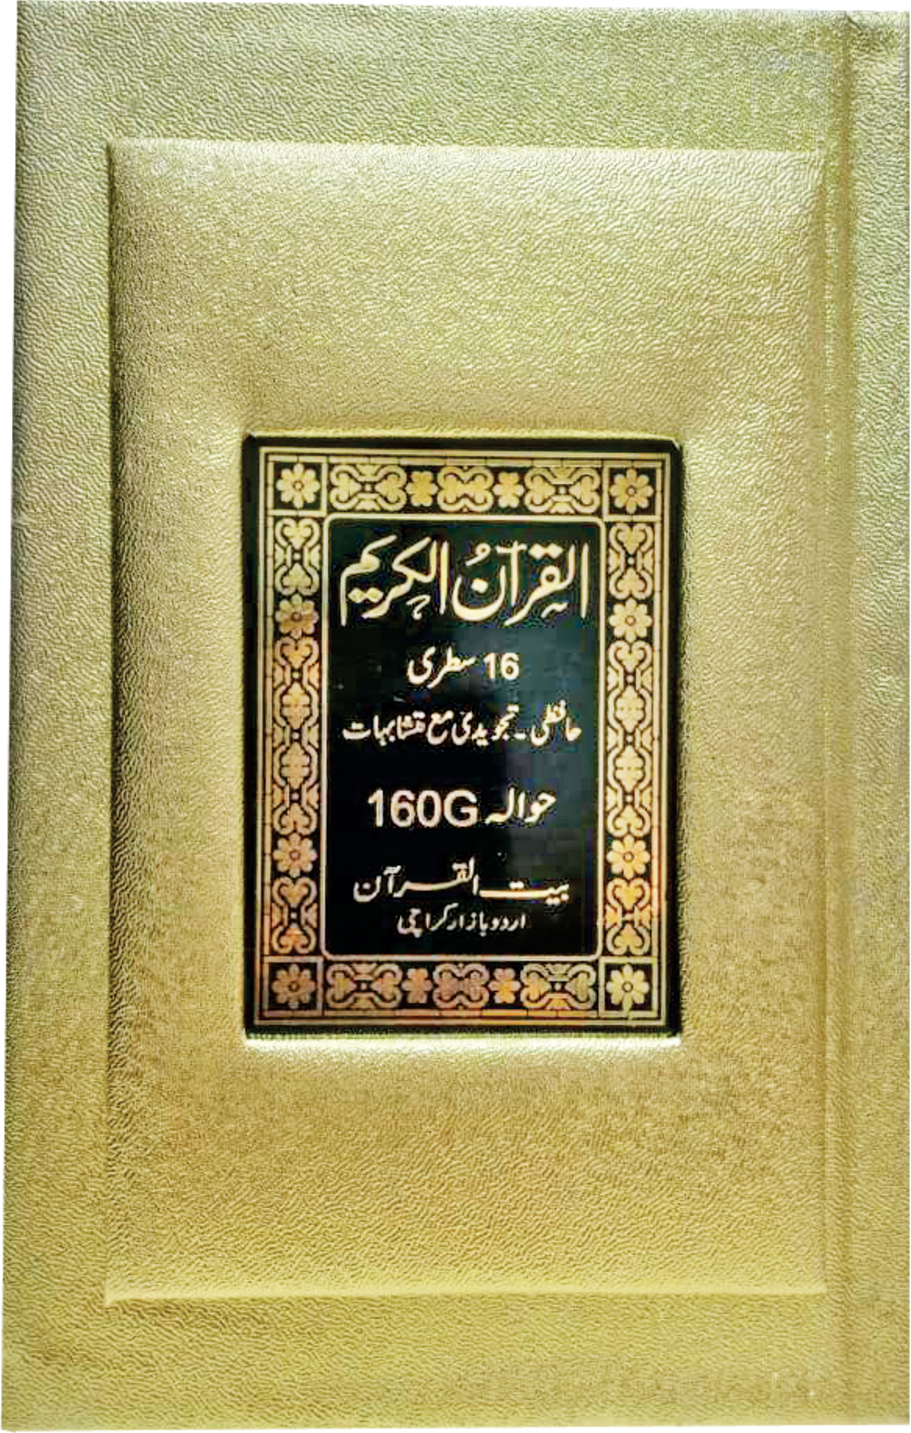 القرآنُ الكريم
16 سطری
حافظی ۔ تجویدی مع متشابہات
حوالہ 160G
بیت القرآن
اردو بازار کراچی